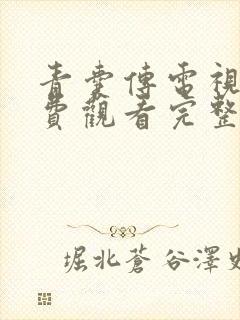 青雲傳電視
費觀看完整
堀北蒼谷澤